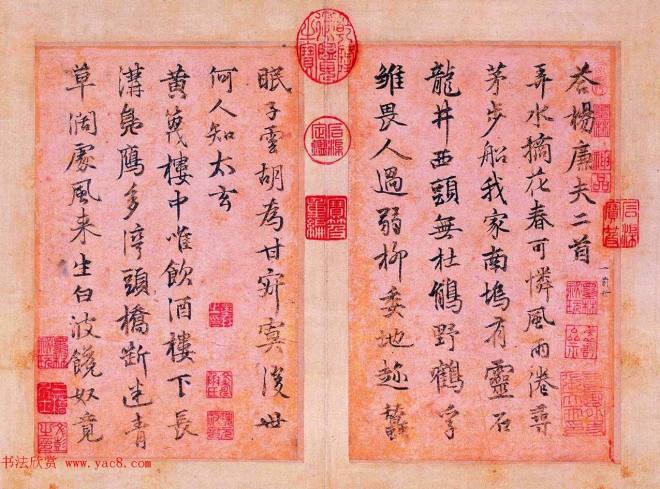 答楊廉夫二首
弄水摘花春可憐風雨港尋
茅步船我家南塢有靈石
龍井西頭無杜鵑野鶴孚
雏畏人過弱柳委地趂蠶
眠子雲胡為甘寂寞後世
何人知太玄
黄篾樓中唯飲酒樓下長
溝鳧鴈多渟頭橋斷迷青
草濶處風来生白波饒奴竟
书法欣赏 www.yac8.com